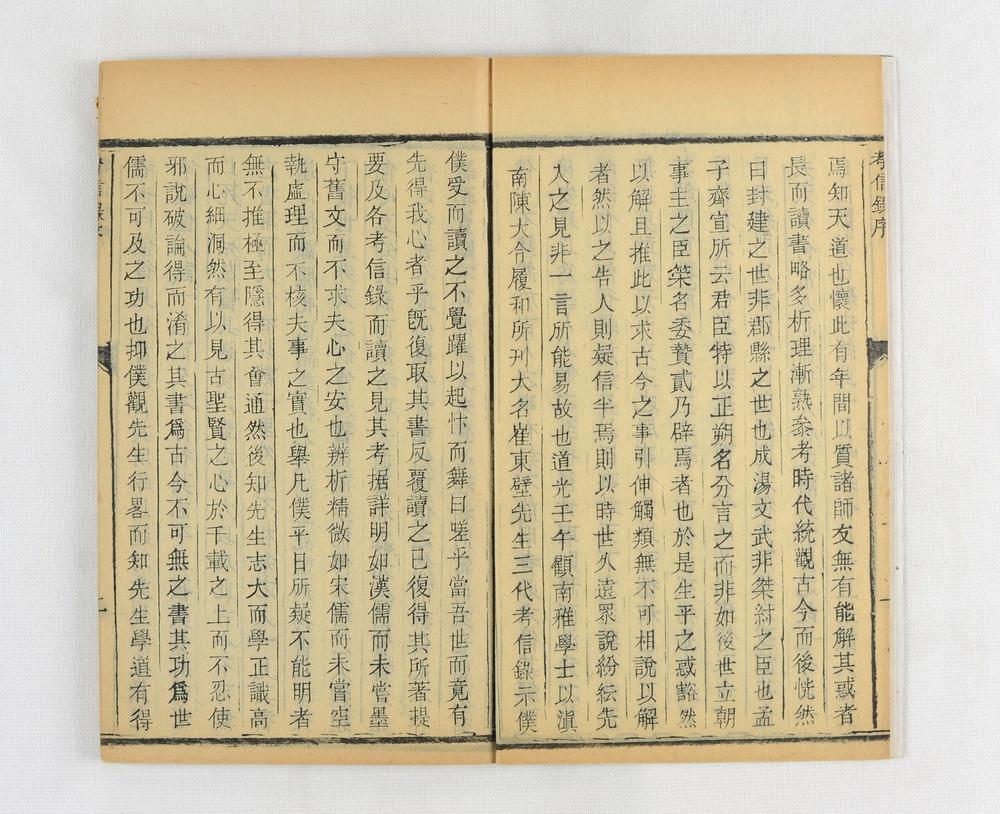 考信錄序
焉知天道也懷此有年間以質諸師友無有能解其惑者
長而讀書略多析理漸熟叅考時代統觀古今而後恍然
曰封建之世非郡縣之世也成湯文武非桀紂之臣也孟
子齊宣所云君臣特以正朔名分言之而非如後世立朝
事主之臣策名委贄貳乃辟焉者也於是生平之惑豁然
以解且推此以求古今之事引伸觸類無不可相說以解
者然以之告人則疑信半焉則以時世久遠眾說紛紜先
入之見非一言所能易故也道光壬午顧南雅學士以滇
南陳大令履和所刊大名崔東壁先生三代考信錄示僕
僕受而讀之不覺躍以起忭而舞曰嗟乎當吾世而竟有
先得我心者乎旣復取其書反覆讀之已復得其所著提
要及各考信錄而讀之見其考据詳明如漢儒而未嘗墨
守舊文而不求夫心之安也辨析精微如宋儒而未嘗空
執虛理而不核夫事之實也舉凡僕平日所疑不能明者
無不推極至隱得其會通然後知先生志大而學正識高
而心細洞然有以見古聖賢之心於千載之上而不忍使
邪說破論得而淆之其書爲古今不可無之書其功爲世
儒不可及之功也抑僕觀先生行畧而知先生學道有得